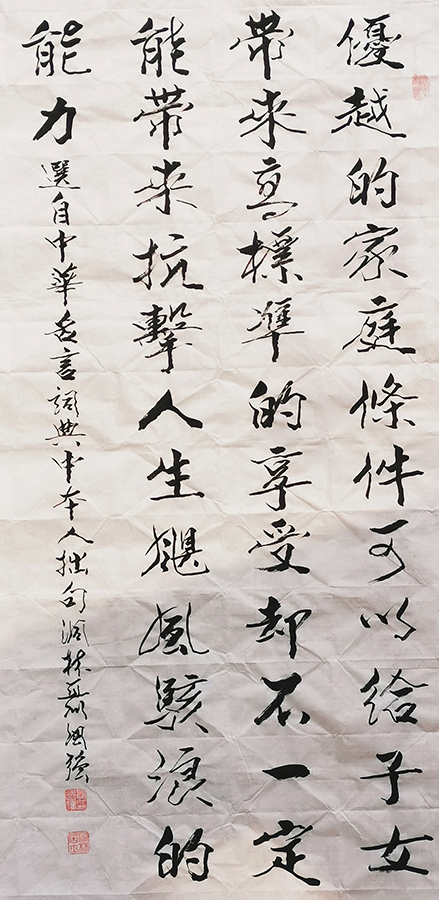 優越的家庭條件可以給子女
帶來高標準的享受却不一定
能帶來抗擊人生颶風駭浪的
能力 選自中華名言詞典中本人拙句 林聶國強